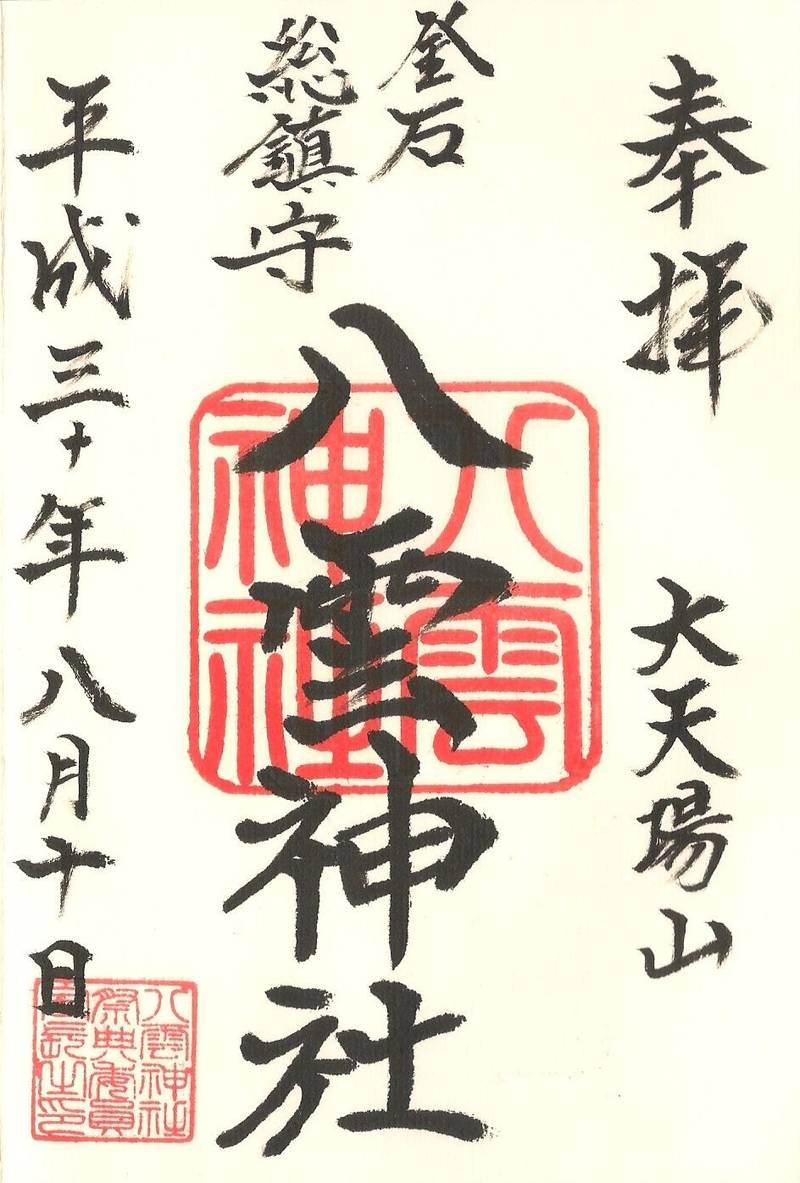 奉拝
大天場山
釜石
総鎮守
八雲神社
平成三十年八月十日
八雲神社
八雲神社
祭典委員
長之印